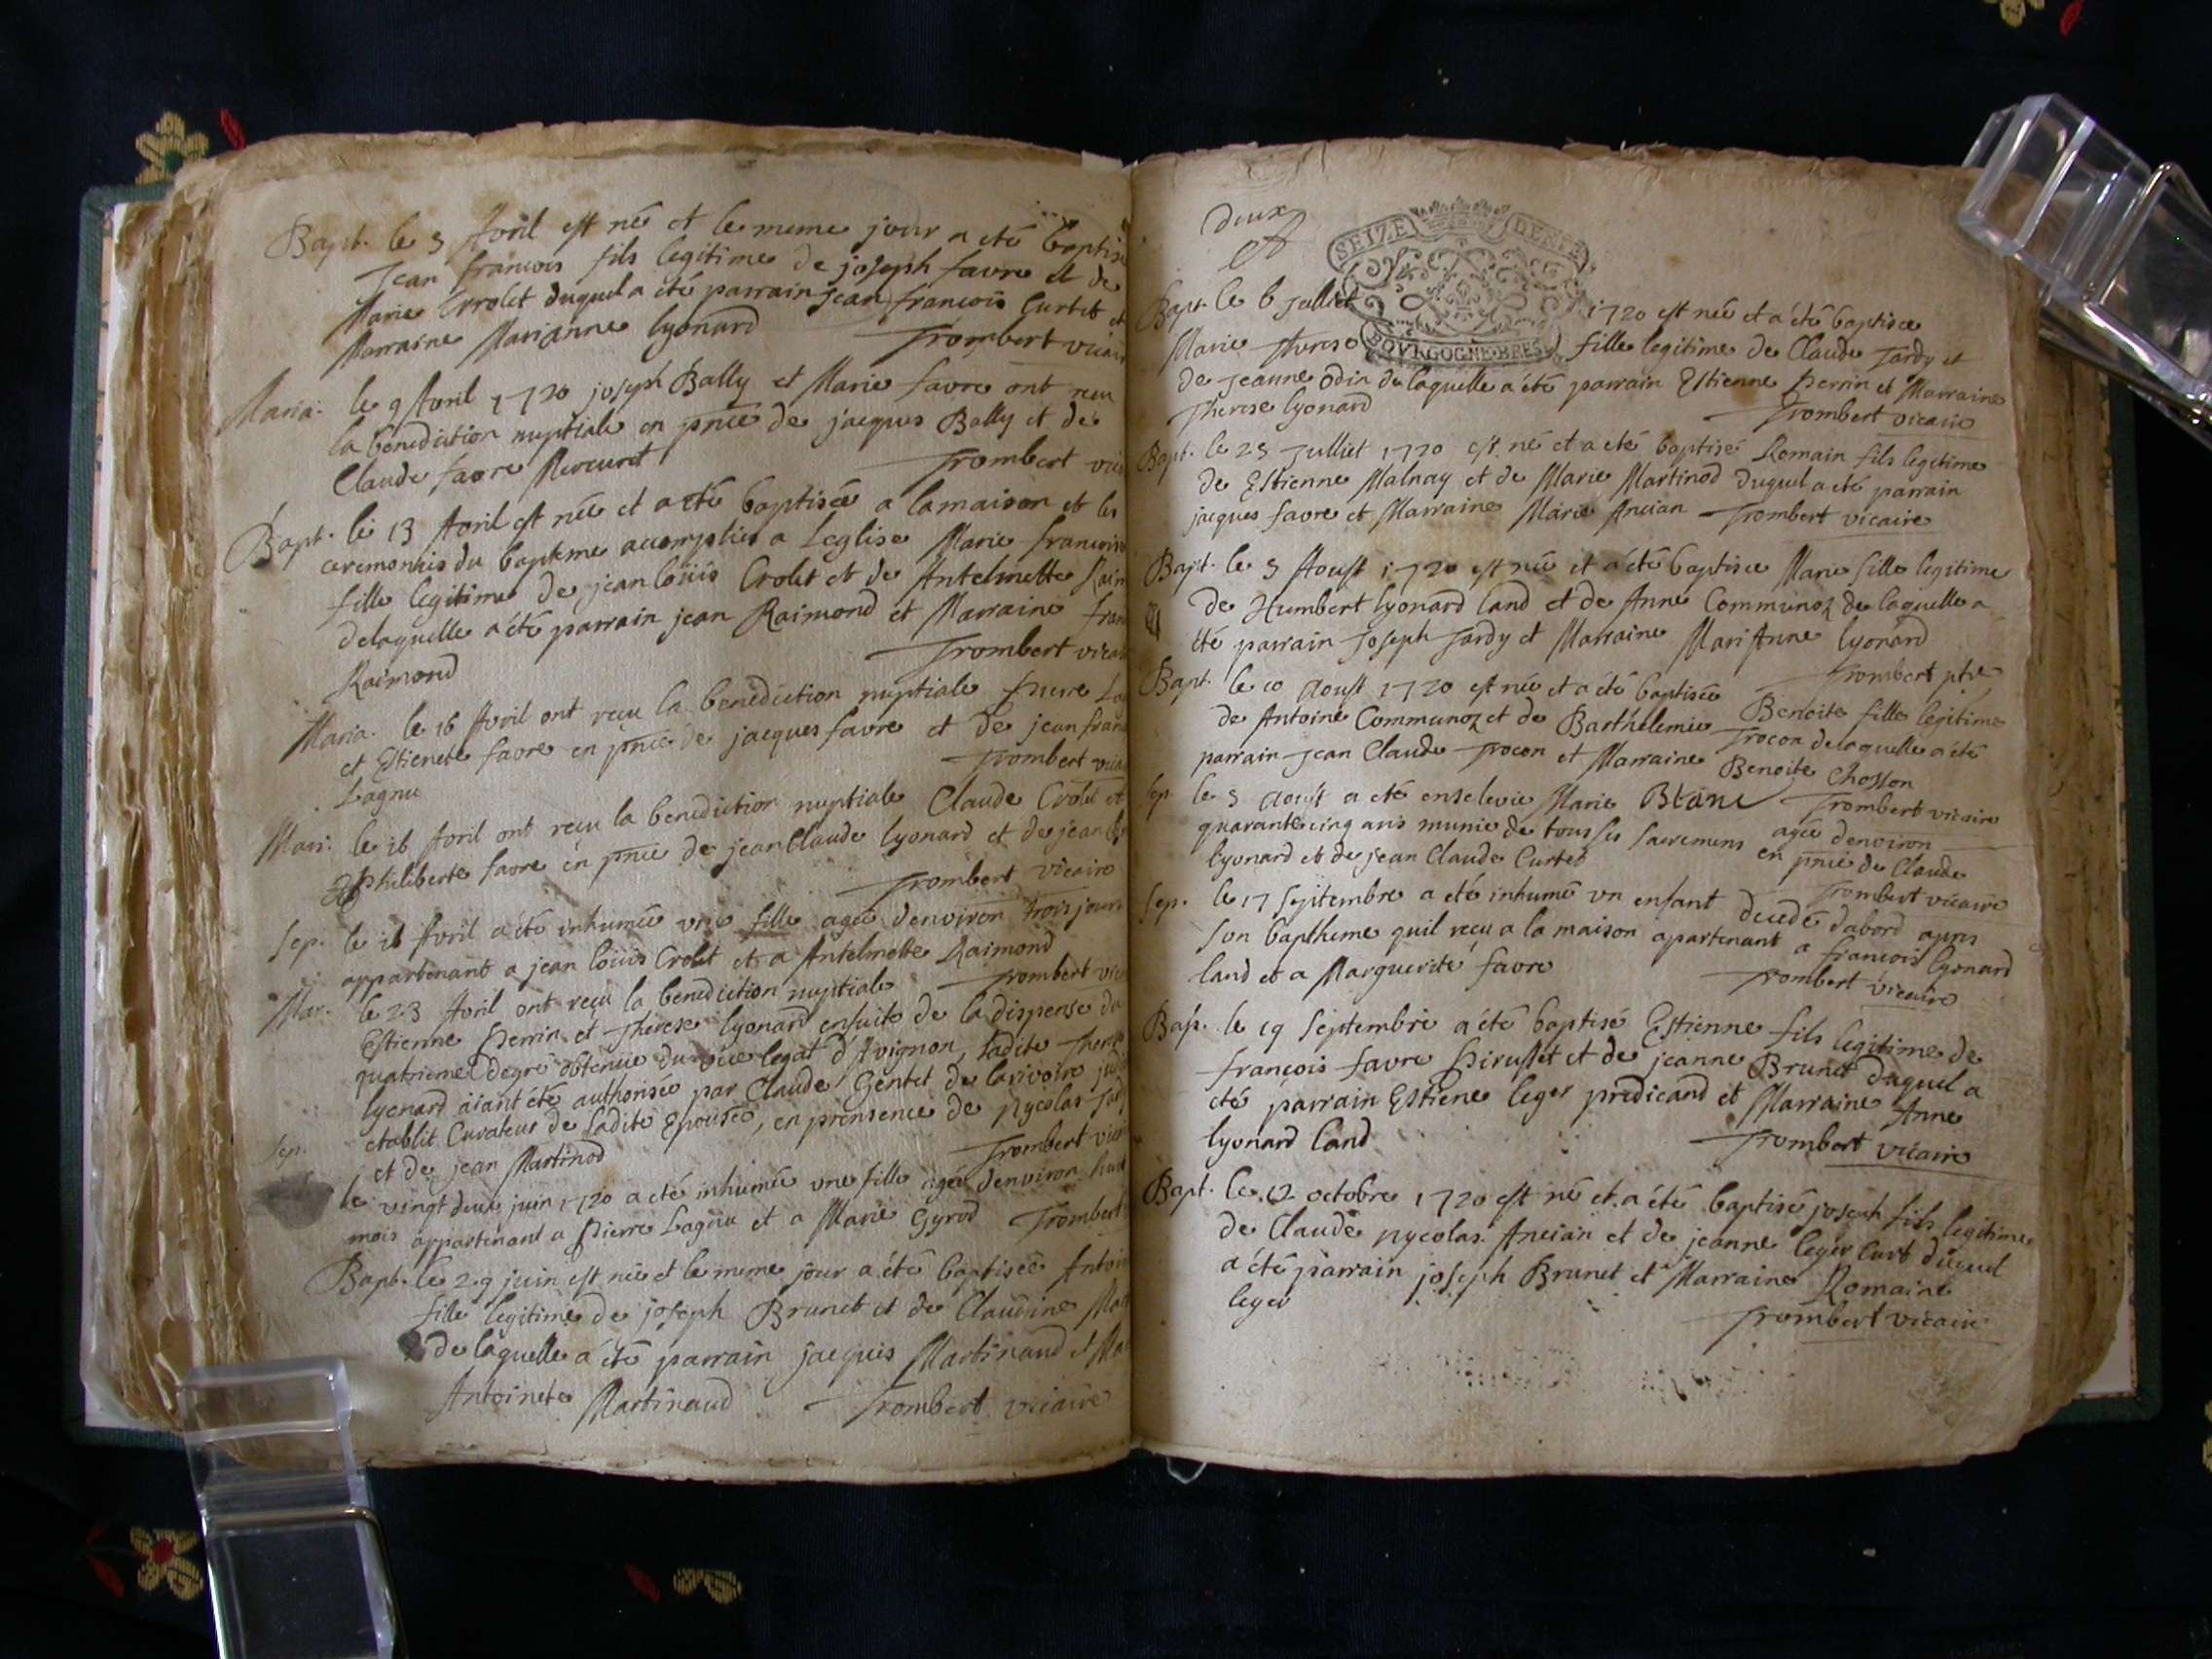 Bapt. le 3 Avril est né et le meme jour a eté baptisé
Jean francois fils legitime de joseph favre et de
Marie Crolet duquel a eté parrain jean francois Curtet et
Marraine Marianne lyonard Trombert vicair
Maria. le 9 Avril 1720 joseph Bally et Marie favre ont recu
la benediction nuptiale en pnce de jacques Bally et de
Claude favre Trombert vic
Bapt. le 13 Avril est née et a eté baptisée a la maison et les
ceremonies du bapteme accomplies a Leglise Marie francoise
fille legitime de jean loüis Crolet et de Antelmette Raim
delaquelle a été parrain jean Raimond et Marraine fran
Raimond Trombert vicair
Maria. le 16 Avril ont reçu la benediction nuptiale pierre La
et Estienete favre en pnce de jacques favre et de jean fran
Lagnu Trombert vica
Mari. le 16 Avril ont reçu la benediction nuptiale Claude Crolet et
Philiberte favre en pnce de jean Claude lyonard et de jean
Trombert vicaire
Sep. le 18 Avril a été inhumée une fille agée denviron trois jours
appartenant a jean loüis Crolet et a Antelmette Raimond
Trombert vic
Mar. le 23 Avril ont reçu la benediction nuptiale
Estienne Perrin et Therese lyonard ensuite de la dispense du
quatrieme degré obtenüe du vice legat d'Avignon, ladite Therese
lyonard aiant été authorisée par Claude Gentet de larivoire
etablit Curateur de ladite Epousée, en prensence de nycolas Tardy
et de jean Martinod Trombert vicai
Sep. le vingt deux juin 1720 a eté inhumée une fille agée denviron huit
mois appartenant a Pierre Lagnu et a Marie Gyrod Trombert
Bapt. le 29 juin est née et le meme jour a été baptisée Antoin
fille legitime de joseph Brunet et de Claudine Mart
de laquelle a été parrain jacques Martinaud et Mar
Antoinete Martinaud Trombert vicaire
deux
SEIZE DENIE
BOURGOGNE-BRES
Bapt. le 6 Julliet 1720 est née et a été baptisee
Marie Therese fille legitime de Claude Tardy et
de Jeanne odin de laquelle a été parrain Estienne Perrin et Marraine
Therese lyonard Trombert vicaire
Bapt. le 25 Julliet 1720 est né et a eté baptisé Romain fils legitime
de Estienne Malnay et de Marie Martinod duquel a eté parrain
jacques favre et Marraine Marie Ancian Trombert vicaire
Bapt. le 5 Aoust 1720 est née et a été baptisee Marie fille legitime
de Humbert lyonard land et de Anne Communoz de laquelle a
été parrain Joseph Tardy et Marraine MariAnne lyonard
Trombert ptre
Bapt. le 10 Aoust 1720 est née et a été baptisée Benoite fille legitime
de Antoine Communoz et de Barthelemie Trocon delaquelle a été
parrain Jean Claude Trocon et Marraine Benoite Chosson
Trombert vicaire
Sep. le 5 Aoust a eté enselevie Marie Blanc agée denviron
quarante cinq ans munie de tous ses sacremens en pnce de Claude
lyonard et de jean Claude Curtet Trombert vicaire
Sep. le 17 Septembre a eté inhumé un enfant decedé dabord apres
son baptheme quil reçu a la maison apartenant a francois lyonard
land et a Marguerite favre Trombert vicaire
Bap. le 19 Septembre a été baptisé Estienne fils legitime de
françois favre Pirustet et de jeanne Brunet duquel a
eté parrain Estiene leger predicand et Marraine Anne
lyonard land Trombert vicaire
Bapt. le 12 octobre 1720 est né et a été baptisé joseph fils legitime
de Claude nycolas Ancian et de jeanne leger Curt duquel
a été parrain joseph Brunet et Marraine Romaine
leger Trombert vicaire